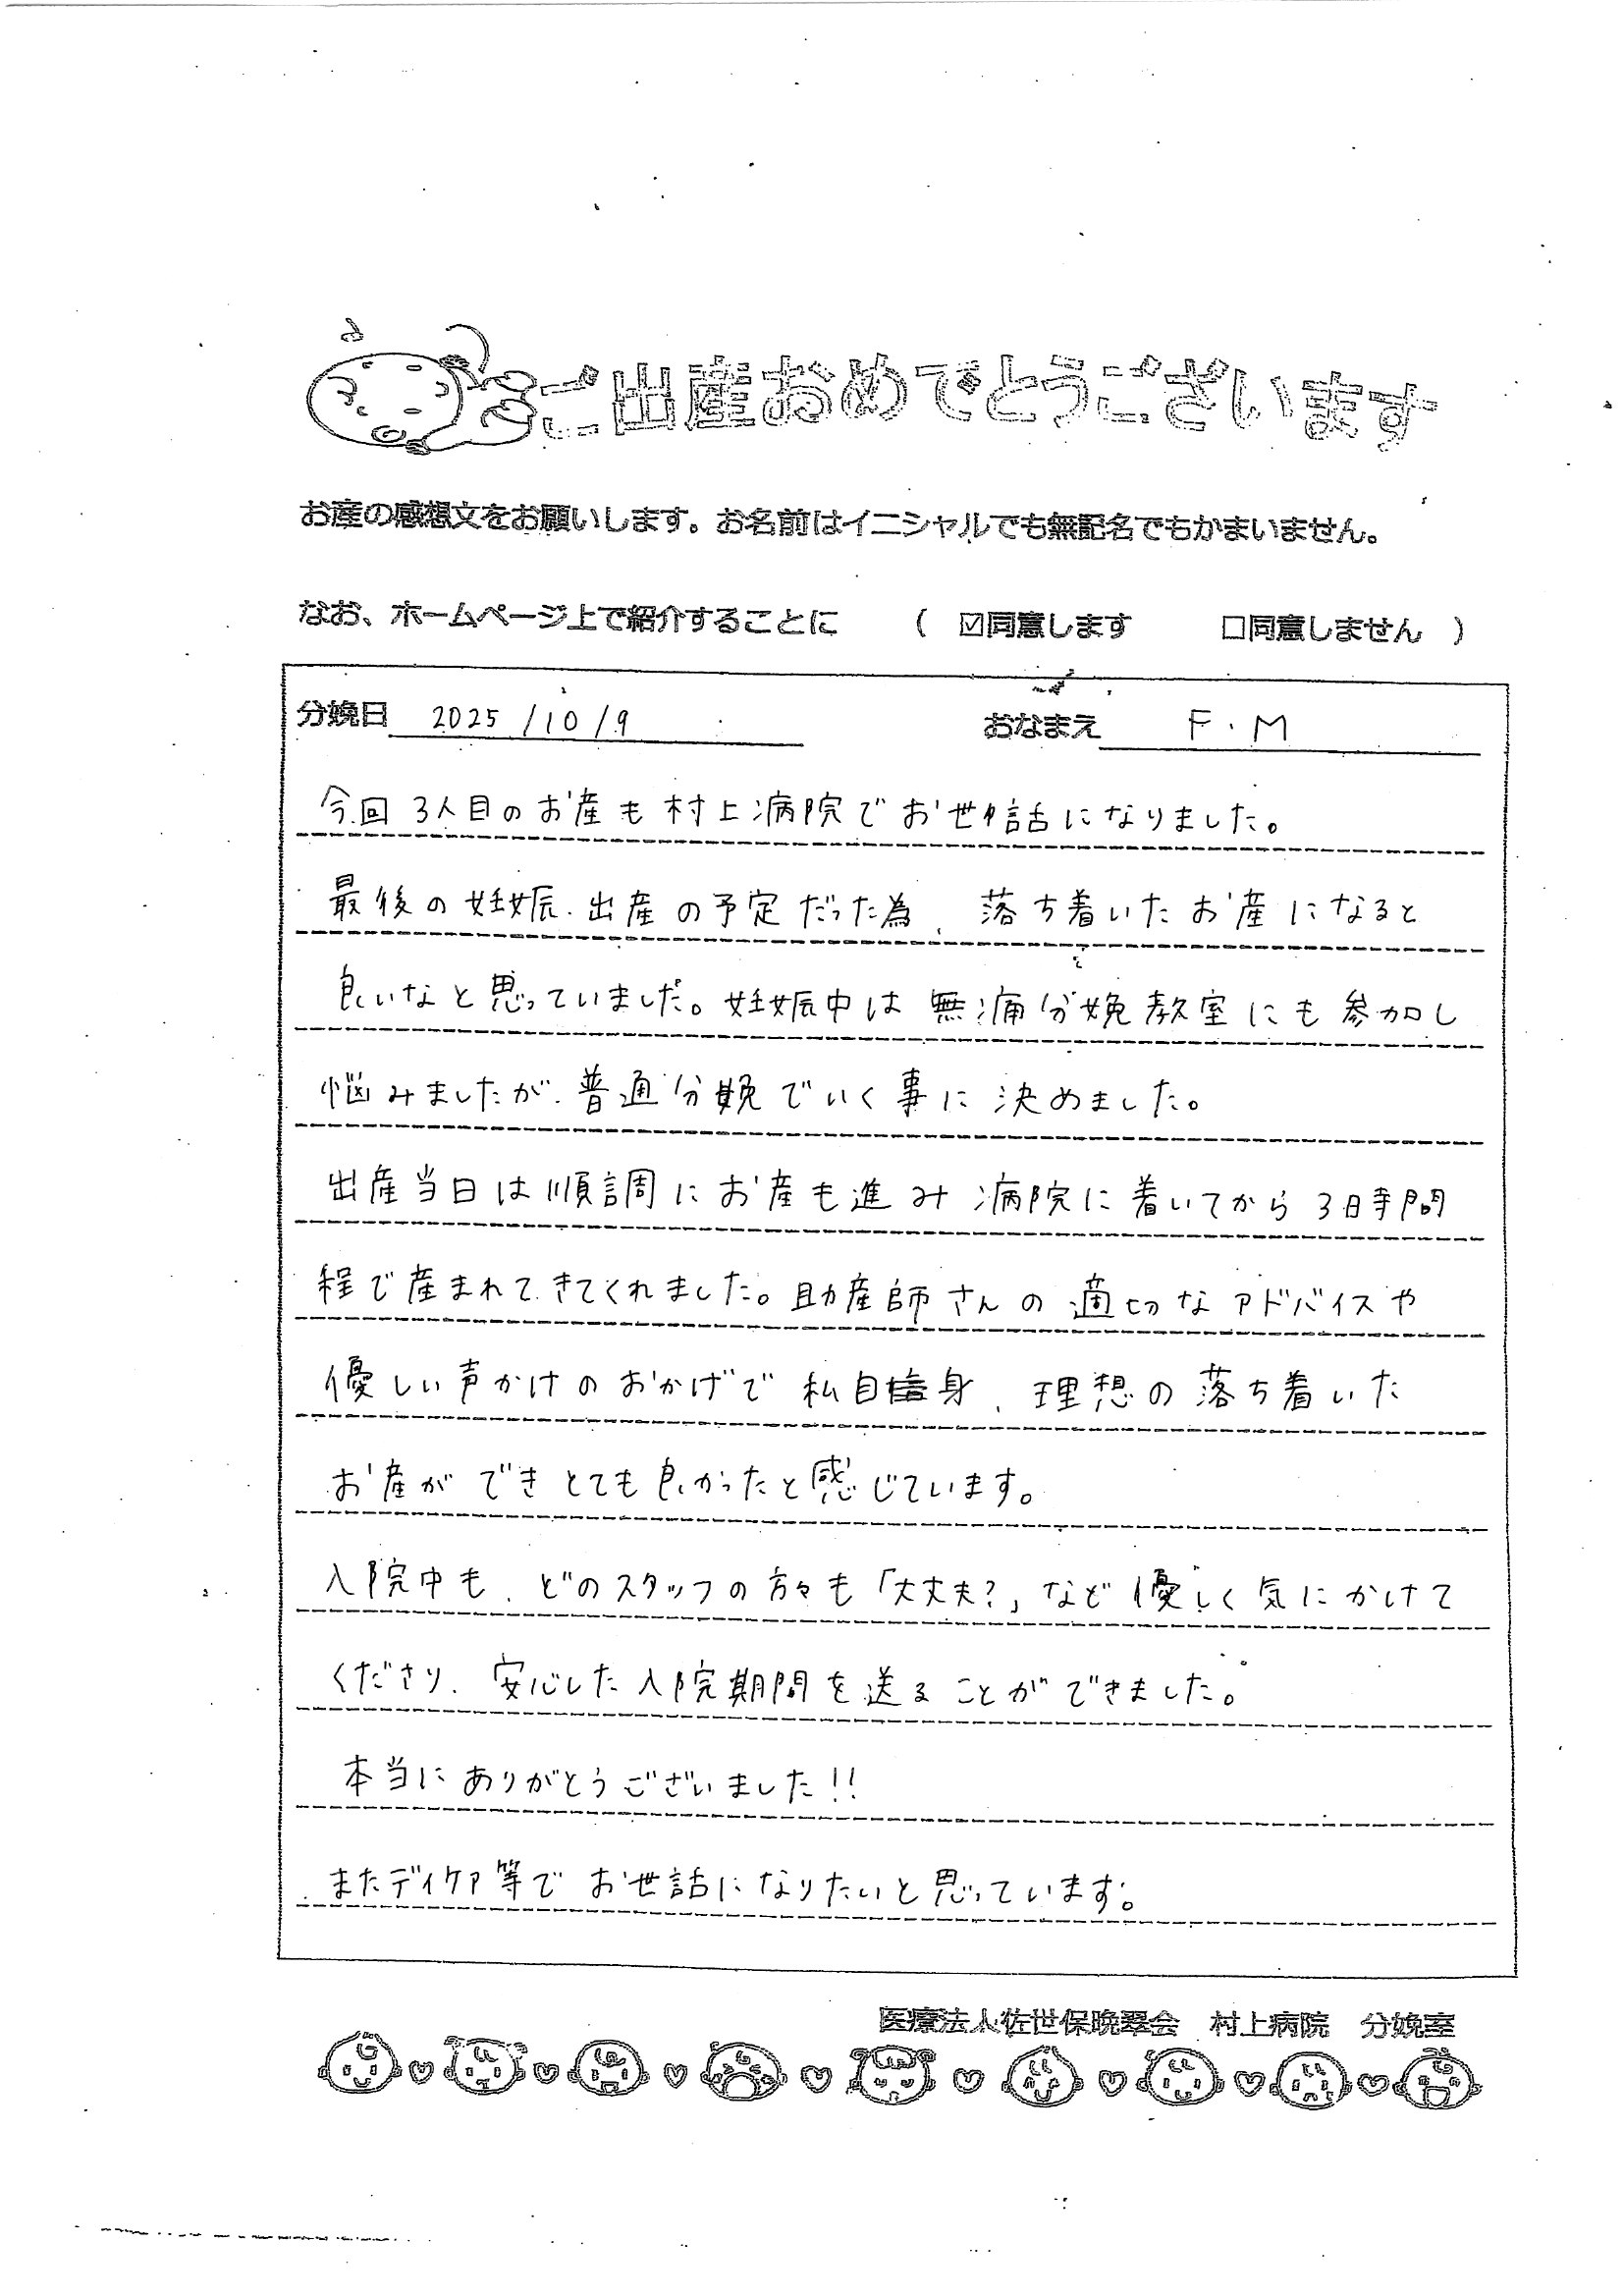 ご出産おめでとうございます
お産の感想文をお願いします。お名前はイニシャルでも無記名でもかまいません。
なお、ホームページ上で紹介することに ( ☑同意します □同意しません )
分娩日 2025/10/9 おなまえ F・M
今回3人目のお産も村上病院でお世話になりました。
最後の妊娠、出産の予定だった為、落ち着いたお産になると
良いなと思っていました。妊娠中は無痛分娩教室にも参加し
悩みましたが、普通分娩でいく事に決めました。
出産当日は順調にお産も進み病院に着いてから3時間
程で産まれてきてくれました。助産師さんの適切なアドバイスや
優しい声かけのおかげで私自身、理想の落ち着いた
お産ができとても良かったと感じています。
入院中も、どのスタッフの方々も「大丈夫?」など優しく気にかけて
くださり、安心した入院期間を送ることができました。
本当にありがとうございました!!
またデイケア等でお世話になりたいと思っています。
医療法人佐世保晩翠会 村上病院 分娩室